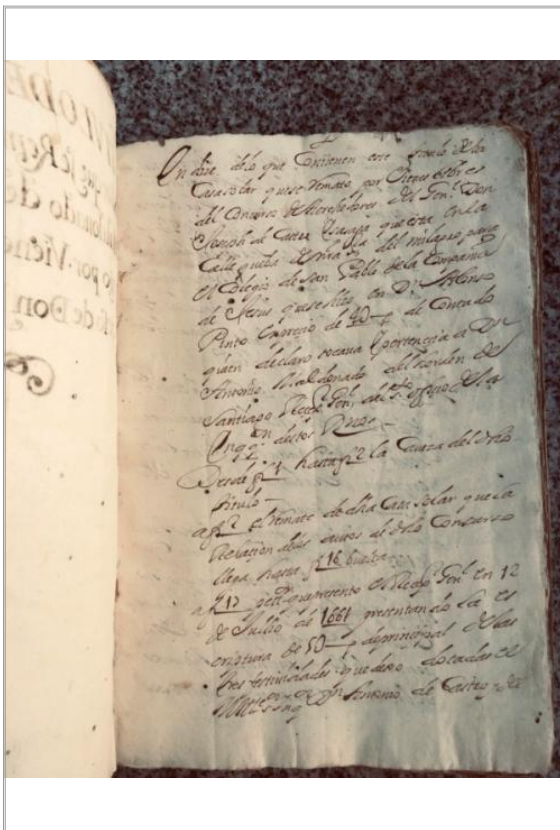 Indize de lo que Contienen este titulo de la
Casa solar que se Remato por Vienes
del Concurso de Acrehedores del Gen.l Don
Joseph de Castro que esta en la
Calle que ba de nra s.ra del milagro para
el Colegio de San Pablo de la Compañia
de Jesus que se hizo en D.n Alonso
Pinto en precio de de Contado
quien declaro tocava y pertenezia a D.n
Antonio Maldonado del horden de
Santiago Recep.r Gen.l del s.to officio de la
Inqq.on destos Rnos
Desde f 1 hasta f 2 la Caveza del dho
titulo
a f 2 el Remate de dha Casa solar que la
Relazion de los autos de dho Concurso
llega hasta f 16 buelta
a f 17 pett.on que presento el Recep.r Gen.l en 12
de Jullio de 1661 presentando la es
criptura de de principal de las
tres festividades que dexo dotadas el
Antonio de Castro y del